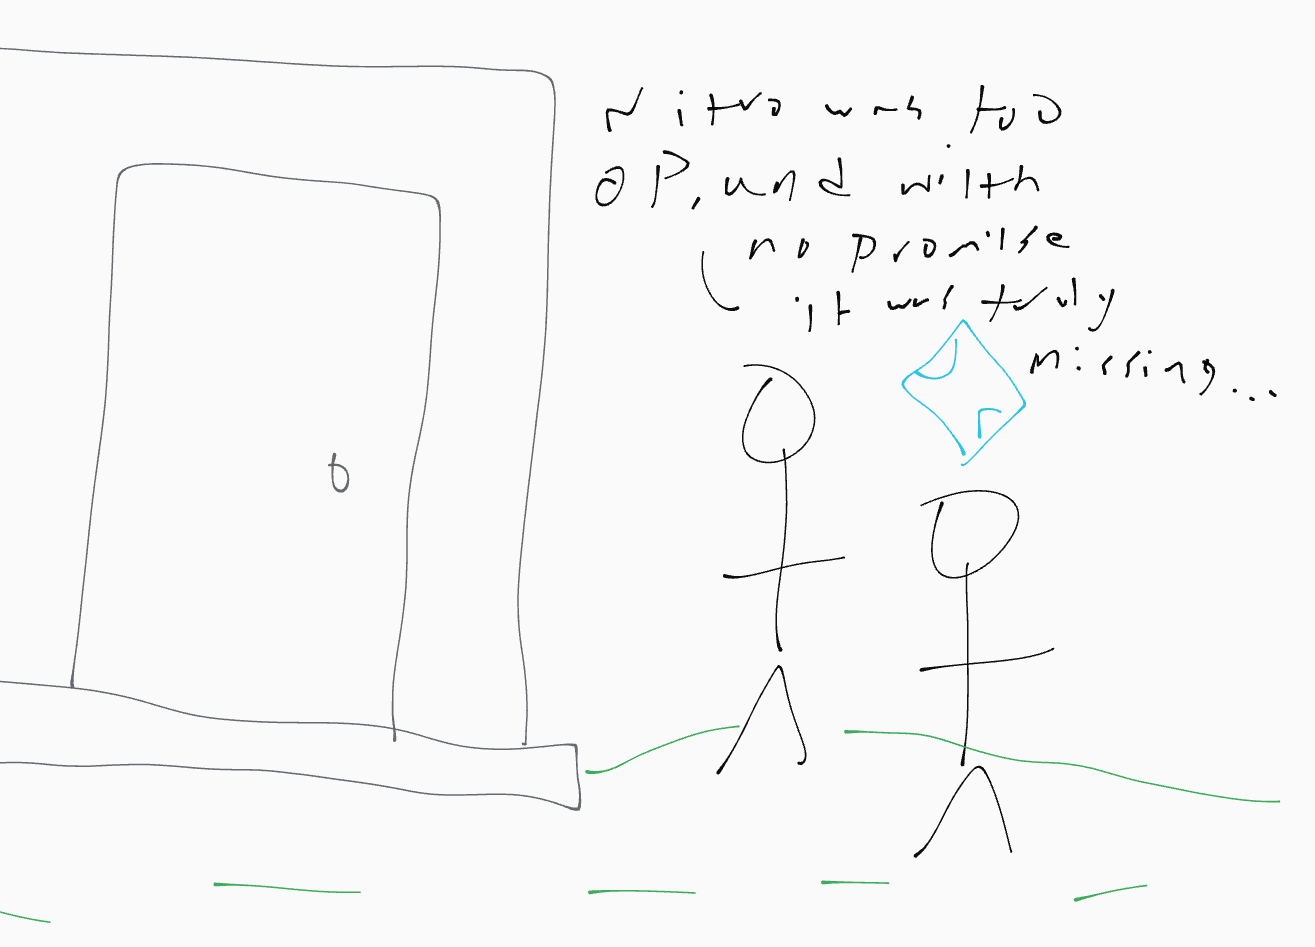 Nitro was too
OP, and with
no promise
it was truly
missing...